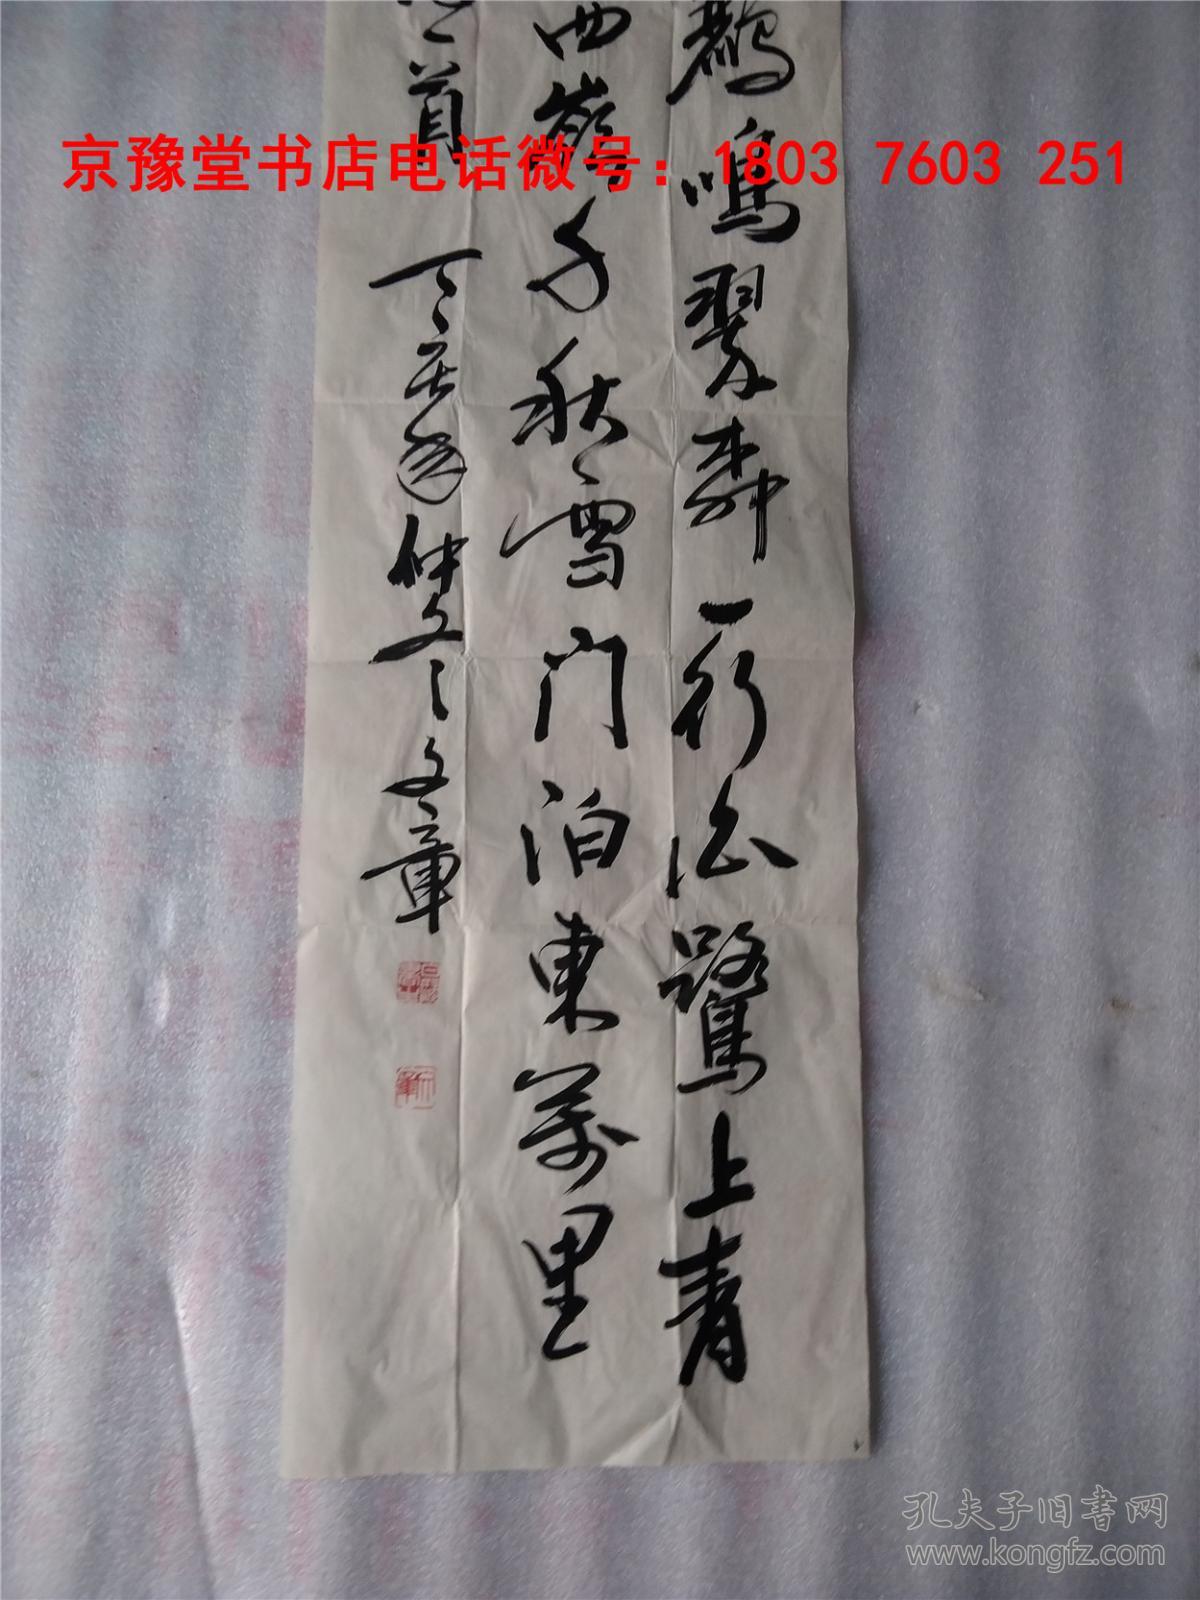 京豫堂书店电话微号：1803 7603 251
鹂鳴翠柳一行白鷺上青
西嶺千秋雪门泊東萬里
首
丁亥 仲 之文章
孔夫子旧书网
www.kongfz.com